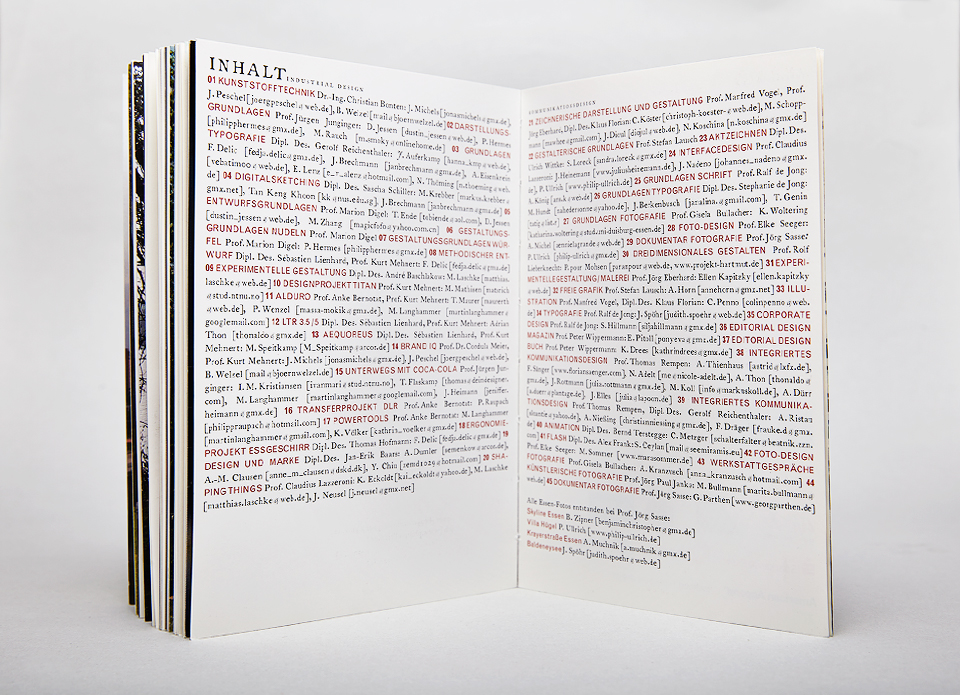 INHALT INDUSTRIAL DESIGN
01 KUNSTSTOFFTECHNIK Dr.-Ing. Christian Bonten: J. Michels [jonasmichels@gmx.de],
J. Peschel [joergpeschel@web.de], B. Welzel [mail@bjoernwelzel.de] 02 DARSTELLUNGS-
GRUNDLAGEN Prof. Jürgen Junginger: D. Jessen [dustin_jessen@web.de], P. Hermes
[philipphermes@gmx.de], M. Rauch [m.ansky@onlinehome.de] 03 GRUNDLAGEN
TYPOGRAFIE Dipl. Des. Gerolf Reichenthaler: J. Auferkamp [hanna_kmp@web.de],
F. Delic [fedja.delic@gmx.de], J. Brechmann [janbrechmann@gmx.de], A. Eisenkrein
[vehatimoo@web.de], E. Lenz [e_r_alenz@hotmail.com], N. Thöming [nthoeming@web.
de] 04 DIGITALSKETCHING Dipl. Des. Sascha Schiller: M. Krebber [markus.krebber@
gmx.net], Tan Keng Khoon [kk@nus.edu.sg], J. Brechmann [janbrechmann@gmx.de] 05
ENTWURFSGRUNDLAGEN Prof. Marion Digel: T. Ende [tobiende@aol.com], D. Jessen
[dustin_jessen@web.de], M. Zhang [magicfsfo@yahoo.com.cn] 06 GESTALTUNGS-
GRUNDLAGEN NUDELN Prof. Marion Digel 07 GESTALTUNGSGRUNDLAGEN WÜR-
FEL Prof. Marion Digel: P. Hermes [philipphermes@gmx.de] 08 METHODISCHER ENT-
WURF Dipl. Des. Sébastien Lienhard, Prof. Kurt Mehnert: F. Delic [fedja.delic@gmx.de]
09 EXPERIMENTELLE GESTALTUNG Dipl. Des. André Baschlakow: M. Laschke [matthias.
laschke@web.de] 10 DESIGNPROJEKT TITAN Prof. Kurt Mehnert: M. Mathisen [matrich
@stud.ntnu.no] 11 ALDURO Prof. Anke Bernotat, Prof. Kurt Mehnert: T. Maurer [maurerth
@web.de], P. Wenzel [massa-mokik@gmx.de], M. Langhammer [martinlanghammer@
googlemail.com] 12 LTR 3.5/5 Dipl. Des. Sébastien Lienhard, Prof. Kurt Mehnert: Adrian
Thon [thonaldo@gmx.de] 13 AEQUOREUS Dipl. Des. Sébastien Lienhard, Prof. Kurt
Mehnert: M. Speitkamp [M_Speitkamp@arcor.de] 14 BRAND IQ Prof. Dr. Cordula Meier,
Prof. Kurt Mehnert: J. Michels [jonasmichels@gmx.de], J. Peschel [joergpeschel@web.de],
B. Welsel [mail@bjoernwelzel.de] 15 UNTERWEGS MIT COCA-COLA Prof. Jürgen Jun-
ginger: I. M. Kristiansen [ivanmari@stud.ntnu.no], T. Flaskamp [thomas@deindesigner.
com], M. Langhammer [martinlanghammer@googlemail.com], J. Heimann [jeniffer.
heimann@gmx.de] 16 TRANSFERPROJEKT DLR Prof. Anke Bernotat: P. Raupach
[philippraupach@hotmail.com] 17 POWERTOOLS Prof. Anke Bernotat: M. Langhammer
[martinlanghammer@gmail.com], K. Völker [kathrin_voelker@gmx.de] 18 ERGONOMIE-
PROJEKT ESSGESCHIRR Dipl. Des. Thomas Hofmann: F. Delic [fedja.delic@gmx.de] 19
DESIGN UND MARKE Dipl. Des. Jan-Erik Baars: A. Dumler [semenkow@arcor.de],
A.-M. Clausen [anne_m_clausen@dskd.dk], Y. Chiu [remd1029@hotmail.com] 20 SHA-
PING THINGS Prof. Claudius Lazzeroni: K. Eckoldt [kai_eckoldt@yahoo.de], M. Laschke
[matthias.laschke@web.de], J. Neusel [j.neusel@gmx.net]
KOMMUNIKATIONSDESIGN
21 ZEICHNERISCHE DARSTELLUNG UND GESTALTUNG Prof. Manfred Vogel, Prof.
Jörg Eberhard, Dipl. Des. Klaus Florian: C. Köster [christoph-koester@web.de], M. Schopp-
mann [mawbee@gmail.com], J. Dieul [diejul@web.de], N. Koschina [n.koschina@gmx.de]
22 GESTALTERISCHE GRUNDLAGEN Prof. Stefan Lauach 23 AKTZEICHNEN Dipl. Des.
Ulrich Wirths: S. Loreck [sandra.loreck@gmx.de] 24 INTERFACEDESIGN Prof. Claudius
Lazzeroni: J. Heinemann [www.juliusheinemann.de], J. Nadeno [johannes_nadeno@gmx.
de], P. Ullrich [www.philip-ullrich.de] 25 GRUNDLAGEN SCHRIFT Prof. Ralf de Jong:
A. König [ann.k@web.de] 26 GRUNDLAGEN TYPOGRAFIE Dipl. Des. Stephanie de Jong:
M. Hundt [nahedersonne@yahoo.de], J. Berkenbusch [jaralina.@gmail.com], T. Genin
[tatig@list.ru] 27 GRUNDLAGEN FOTOGRAFIE Prof. Gisela Bullacher: K. Woltering
[katharina.woltering@stud.uni-duisburg-essen.de] 28 FOTO-DESIGN Prof. Elke Seeger:
A. Michel [sensiel@grande@web.de] 29 DOKUMENTAR FOTOGRAFIE Prof. Jörg Sasse:
P. Ullrich [philip-ullrich@gmx.de] 30 DREIDIMENSIONALES GESTALTEN Prof. Rolf
Lieberknecht: P. pour Mohsen [parapour@web.de, www.projekt-hartmut.de] 31 EXPERI-
MENTELLE GESTALTUNG/MALEREI Prof. Jörg Eberhard: Ellen Kapitzky [ellen.kapitzky
@web.de] 32 FREIE GRAFIK Prof. Stefan Lauach: A. Horn [annehorn@gmx.net] 33 ILLU-
STRATION Prof. Manfred Vogel, Dipl. Des. Klaus Florian: C. Penno [colinpenno@web.
de] 34 TYPOGRAPHIE Prof. Ralf de Jong: J. Spöhr [judith.spoehr@web.de] 35 CORPORATE
DESIGN Prof. Ralf de Jong: S. Hillmann [siljahillmann@gmx.de] 36 EDITORIAL DESIGN
MAGAZIN Prof. Peter Wippermann: E. Pitoll [ponyeva@gmx.de] 37 EDITORIAL DESIGN
BUCH Prof. Peter Wippermann: K. Drees [kathrindrees@gmx.de] 38 INTEGRIERTES
KOMMUNIKATIONSDESIGN Prof. Thomas Rempen: A. Thienhaus [astrid@lxfx.de],
F. Singer [www.floriansaenger.com], N. Adelt [me@nicole-adelt.de], A. Thon [thonaldo@
gmx.de], J. Rottmann [julia.rottmann@gmx.de], M. Koll [info@markuskoll.de], A. Dürr
[a.duerr@plantage.de], J. Elles [julia@lapoon.de] 39 INTEGRIERTES KOMMUNIKA-
TIONSDESIGN Prof. Thomas Rempen, Dipl. Des. Gerolf Reichenthaler: A. Ristau
[sluntie@yahoo.de], A. Nießing [christianniessing@gmx.de], F. Dräger [frauke.d@gmx.
de] 40 ANIMATION Dipl. Des. Bernd Terstegge: C. Metzger [schalterfalter@beatnik.ran.
com] 41 FLASH Dipl. Des. Alex Frank: S. Ceylan [mail@seemiramis.eu] 42 FOTO-DESIGN
Prof. Elke Seeger: M. Sommer [www.marasommer.de] 43 WERKSTATTGESPRÄCHE
FOTOGRAFIE Prof. Gisela Bullacher: A. Kranzusch [anna_kranzusch@hotmail.com] 44
KÜNSTLERISCHE FOTOGRAFIE Prof. Jörg Paul Janka: M. Bullmann [marita.bullmann@
web.de] 45 DOKUMENTAR FOTOGRAFIE Prof. Jörg Sasse: G. Parthen [www.georgparthen.de]
Alle Essen-Fotos entstanden bei Prof. Jörg Sasse:
Skyline Essen B. Zipner [benjaminchristopher@gmx.de]
Villa Hügel P. Ullrich [www.philip-ullrich.de]
Krayerstraße Essen A. Muchnik [a.muchnik@gmx.de]
Baldeneysee J. Spöhr [judith.spoehr@web.de]